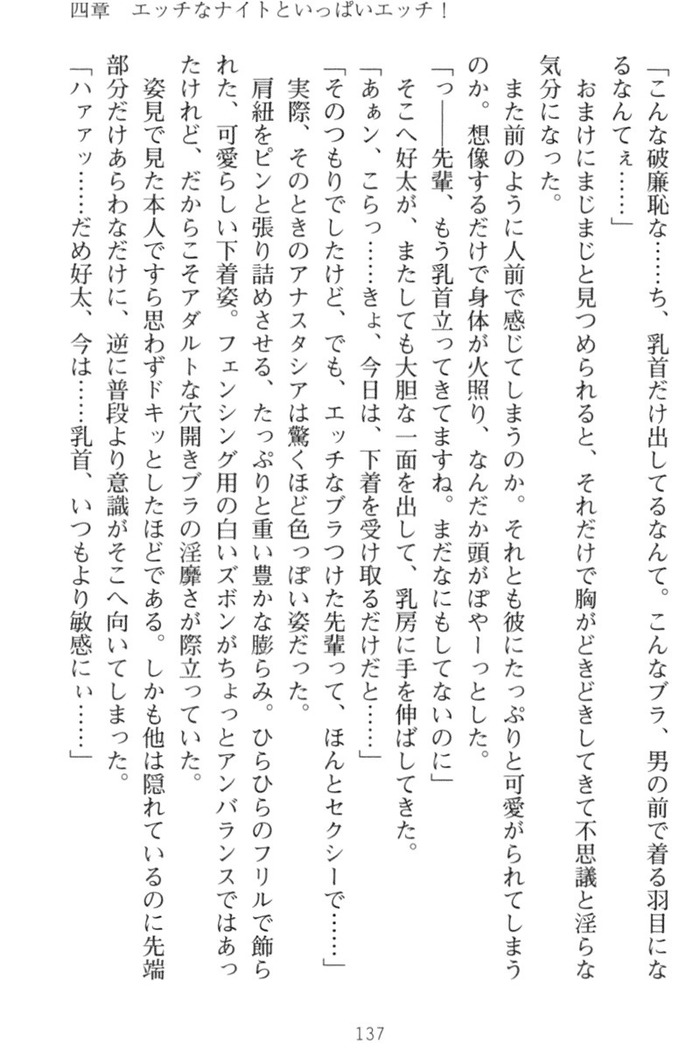 四章　エッチなナイトといっぱいエッチ！
「こんな破廉恥な……ち、乳首だけ出してるなんて。こんなブラ、男の前で着る羽目にな
るなんてぇ……」
おまけにまじまじと見つめられると、それだけで胸がどきどきしてきて不思議と淫らな
気分になった。
また前のように人前で感じてしまうのか。それとも彼にたっぷりと可愛がられてしまう
のか。想像するだけで身体が火照り、なんだか頭がぽやーっとした。
「っ――先輩、もう乳首立ってきてますね。まだなにもしてないのに」
そこへ好太が、またしても大胆な一面を出して、乳房に手を伸ばしてきた。
「あぁン、こらっ……きょ、今日は、下着を受け取るだけだと……」
「そのつもりでしたけど、でも、エッチなブラつけた先輩って、ほんとセクシーで……」
実際、そのときのアナスタシアは驚くほど色っぽい姿だった。
肩紐をピンと張り詰めさせる、たっぷりと重い豊かな膨らみ。ひらひらのフリルで飾ら
れた、可愛らしい下着姿。フェンシング用の白いズボンがちょっとアンバランスではあっ
たけれど、だからこそアダルトな穴開きブラの淫靡さが際立っていた。
姿見で見た本人ですら思わずドキッとしたほどである。しかも他は隠れているのに先端
部分だけあらわなだけに、逆に普段より意識がそこへ向いてしまった。
「ハァァッ……だめ好太、今は……乳首、いつもより敏感にぃ……」
137